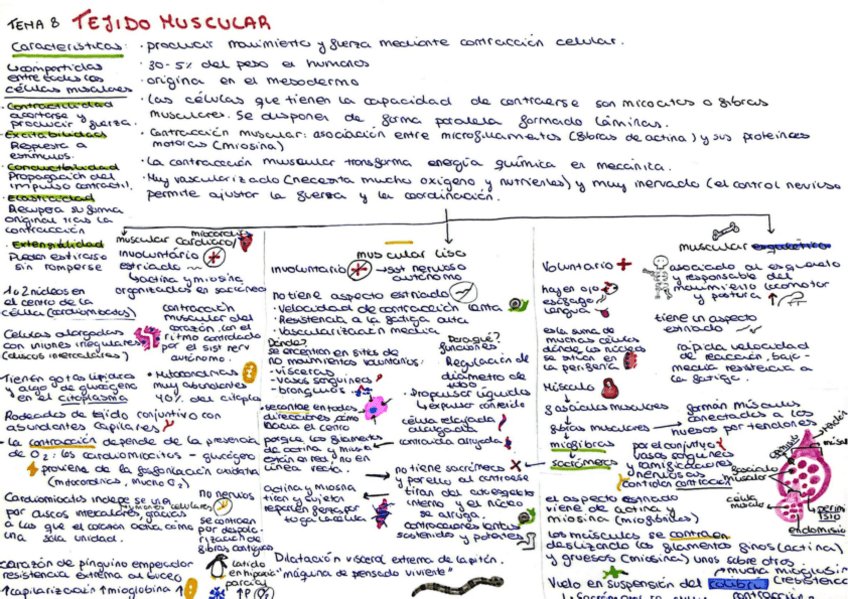 TEMA 8 TEJIDO MUSCULAR
Características:
· producir movimiento y fuerza mediante contracción celular.
compartidas
entre todas las
células musculares
· 30-5% del peso e humanos
· origina en el mesodermo
· Las células que tienen la capacidad de contraerse son miocitos o fibras
musculares. Se disponen de forma paralela formado láminas.
· Contracción muscular: asociación entre microfilamentos (fibras de actina) y sus proteínas
motoras (miosina)
· La contracción muscular transforma energía química en mecánica.
· Muy vascularizado (necesita mucho oxígeno y nutrientes) y muy inervado (el control nervioso
permite ajustar la fuerza y la coordinación.
· Contractilidad
acortarse y
producir fuerza.
· Excitabilidad
Respuesta a
estímulos.
· Conductibilidad
Propagación del
impulso contráctil.
· Elasticidad
Recupera su forma
original tras la
contracción
· Extensibilidad
Pueden estirarse
sin romperse
muscular cardíaco/
miocardio
involuntario
estriado
actina y miosina
organizadas en sacrómeros
1 o 2 núcleos en
el centro de la
célula (cardiomiocitos)
contracción
muscular del
corazón, con el
ritmo controlado
por el sist nerv
autónomo.
Células alargadas
con uniones irregulares
(discos intercalares)
Tienen gotas lipídicas
y algo de glucógeno
en el citoplasma
· Mitocondrias
muy abundantes
40% del citoplas
Rodeadas de tejido conjuntivo con
abundantes capilares
- la contracción depende de la presencia
de O2: los cardiomiocitos - glucógeno
proviene de la fosforilación oxidativa
(mitocondrias, mucho O2)
Cardiomiocitos indepe se unen
por discos intercalares, gracias
a los que el corazón actúa como
una sola unidad.
no nervios
se contraen
por despola-
rización de
fibras contiguas
corazón de pingüino emperador
resistencia extrema al buceo
↑capilarización ↑mioglobina
latido
en hipoxia
parcial
↑P
muscular liso
involuntario → sist nervioso
autónomo
no tiene aspecto estriado
· Velocidad de contracción lenta
· Resistencia a la fatiga alta
· Vascularización media
Dónde?
se encuentran en sitios de
no movimientos voluntarios:
- vísceras
- vasos sanguíneos
- bronquios
Para qué?
funciones
Regulación de
diámetro de
tubo
Propulsar líquidos
y expulsar contenido
célula relajada
alargada
contraída arrugada
se contrae en todas
direcciones como
hacia el centro
porque los filamentos
de actina y miosina
están en red, no en
línea recta.
Actina y miosina
tiran y sujetan
reparten fuerza por
toda la célula
no tiene sacrómeros
y por ello al contraerse
tiran del citoesqueleto
interno y el núcleo
se arruga.
contracciones lentas
sostenidas y potentes
Dilatación visceral extrema de la pitón.
"máquina de pensado viviente"
muscular esquelético
Voluntario
hay en ojo
esófago
lengua
asociado al esqueleto
y responsable del
movimiento locomotor
y postura
es la suma de
muchas células
dónde los núcleos
se sitúan en
la periferia
tiene un aspecto
estriado
rápida velocidad
de reacción, baja-
media resistencia a
la fatiga.
Músculo
fascículos musculares
fibras musculares
miofibras
sacrómeros
forman músculos
conectados a los
huesos por tendones
por el conjuntivo
vasos sanguíneos
y ramificaciones
nerviosas
controlan contracción
fascículo
muscular
célula
muscular
perimi
sio
endomisio
el aspecto estriado
viene de actina y
miosina (miofibrillas)
los músculos se contraen
deslizando los filamentos finos (actina)
y gruesos (miosina) unos sobre otros
Vuelo en suspensión del colibrí
mucha mioglobina